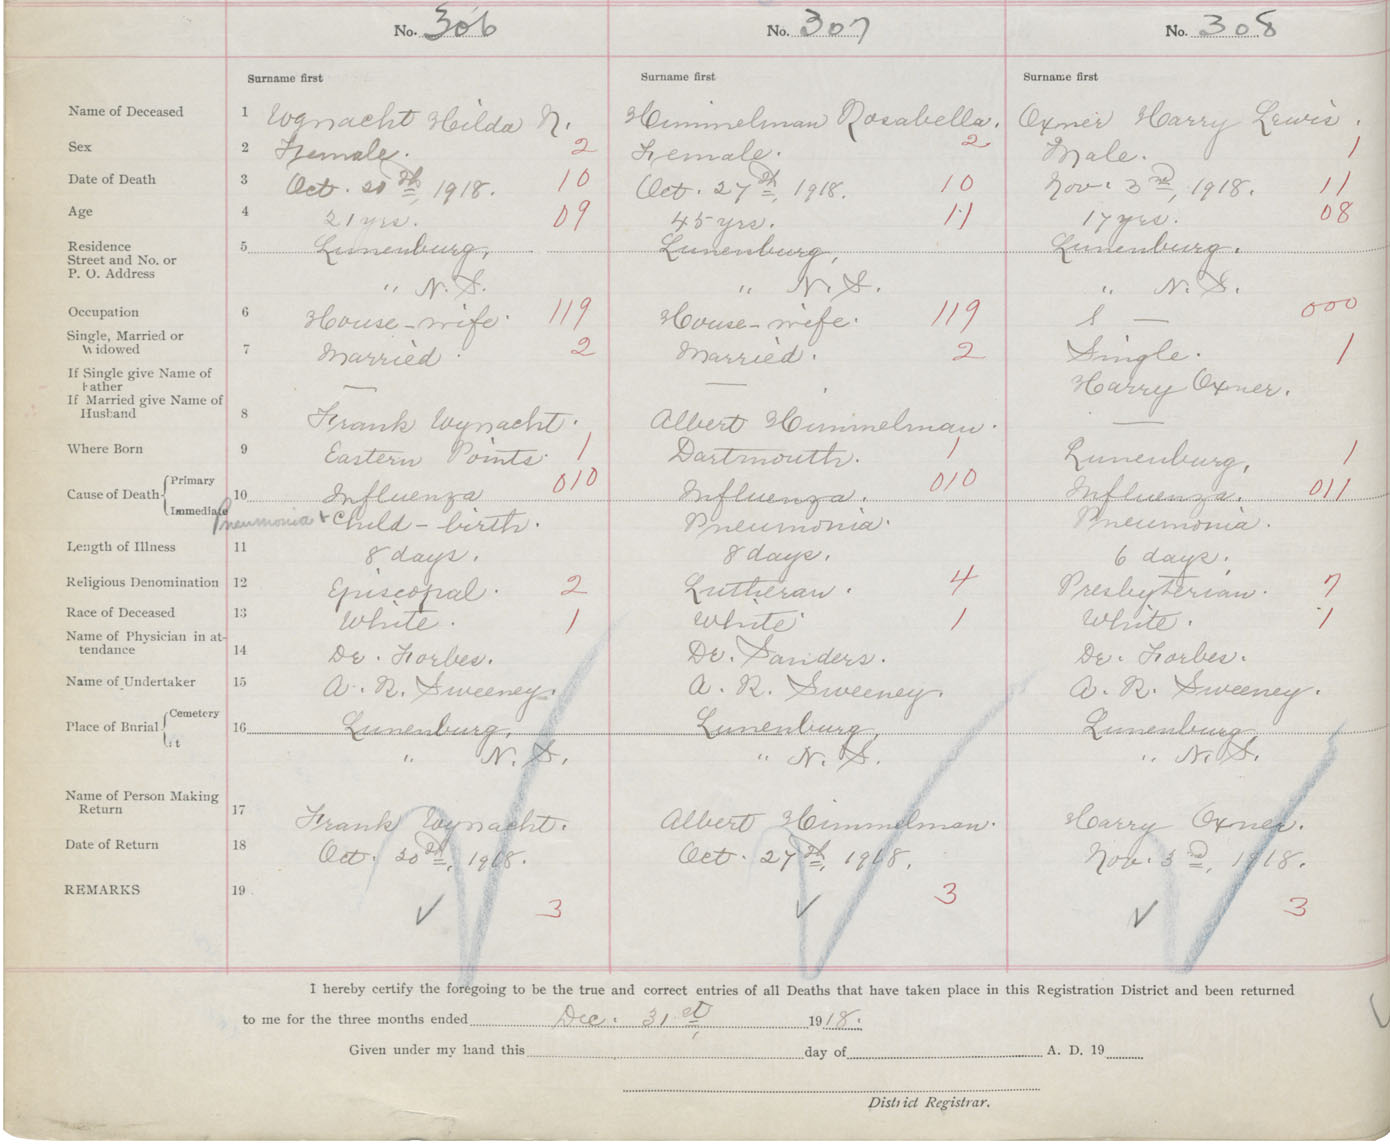 No. 306 No. 307 No. 308
Surname first Surname first Surname first
Name of Deceased 1 Wynacht Hilda N. Himmelman Rosabella. Oxner Harry Lewis.
Sex 2 Female. 2 Female. 2 Male. 1
Date of Death 3 Oct. 20th, 1918. 10 Oct. 27th, 1918. 10 Nov. 3rd, 1918. 11
Age 4 21 yrs. 09 45 yrs. 11 17 yrs. 08
Residence 5 Lunenburg, Lunenburg, Lunenburg.
Street and No. or
P. O. Address " N. S. " N. S. " N. S.
Occupation 6 House-wife. 119 House-wife. 119 — 000
Single, Married or
Widowed 7 Married. 2 Married. 2 Single. 1
If Single give Name of
Father — — Harry Oxner.
If Married give Name of
Husband 8 Frank Wynacht. Albert Himmelman. —
Where Born 9 Eastern Points. 1 Dartmouth. 1 Lunenburg, 1
Cause of Death Primary 10 Influenza 010 Influenza. 010 Influenza. 011
Immediate Pneumonia + Child-birth. Pneumonia. Pneumonia.
Length of Illness 11 8 days. 8 days. 6 days.
Religious Denomination 12 Episcopal. 2 Lutheran. 4 Presbyterian. 7
Race of Deceased 13 White. 1 White 1 White. 1
Name of Physician in at-
tendance 14 Dr. Forbes. Dr. Sanders. Dr. Forbes.
Name of Undertaker 15 A. R. Sweeney. A. R. Sweeney. A. R. Sweeney.
Place of Burial Cemetery 16 Lunenburg, Lunenburg, Lunenburg,
" N. S. " N. S. " N. S.
Name of Person Making
Return 17 Frank Wynacht. Albert Himmelman. Harry Oxner.
Date of Return 18 Oct. 20th, 1918. Oct. 27th, 1918. Nov. 3rd, 1918.
REMARKS 19 ✓ 3 ✓ 3 ✓ 3
I hereby certify the foregoing to be the true and correct entries of all Deaths that have taken place in this Registration District and been returned
to me for the three months ended Dec. 31st, 1918.
Given under my hand this day of A. D. 19
District Registrar.